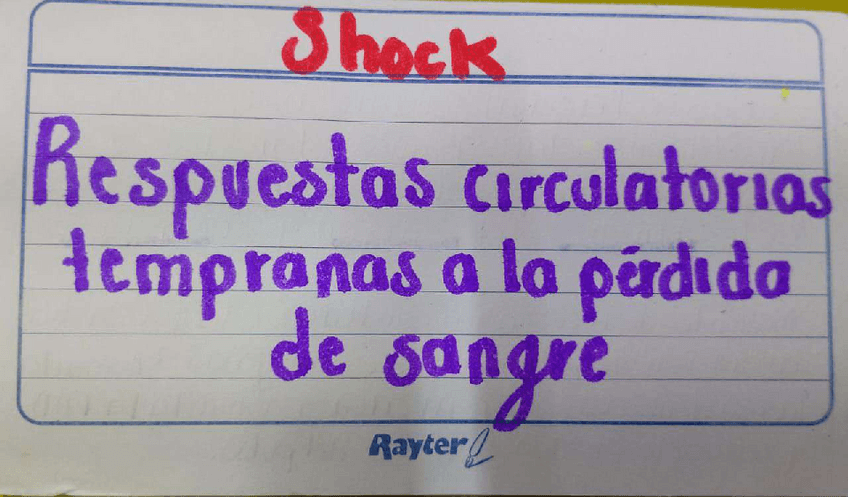 Shock
Respuestas circulatorias
tempranas a la pérdida
de sangre
Rayter